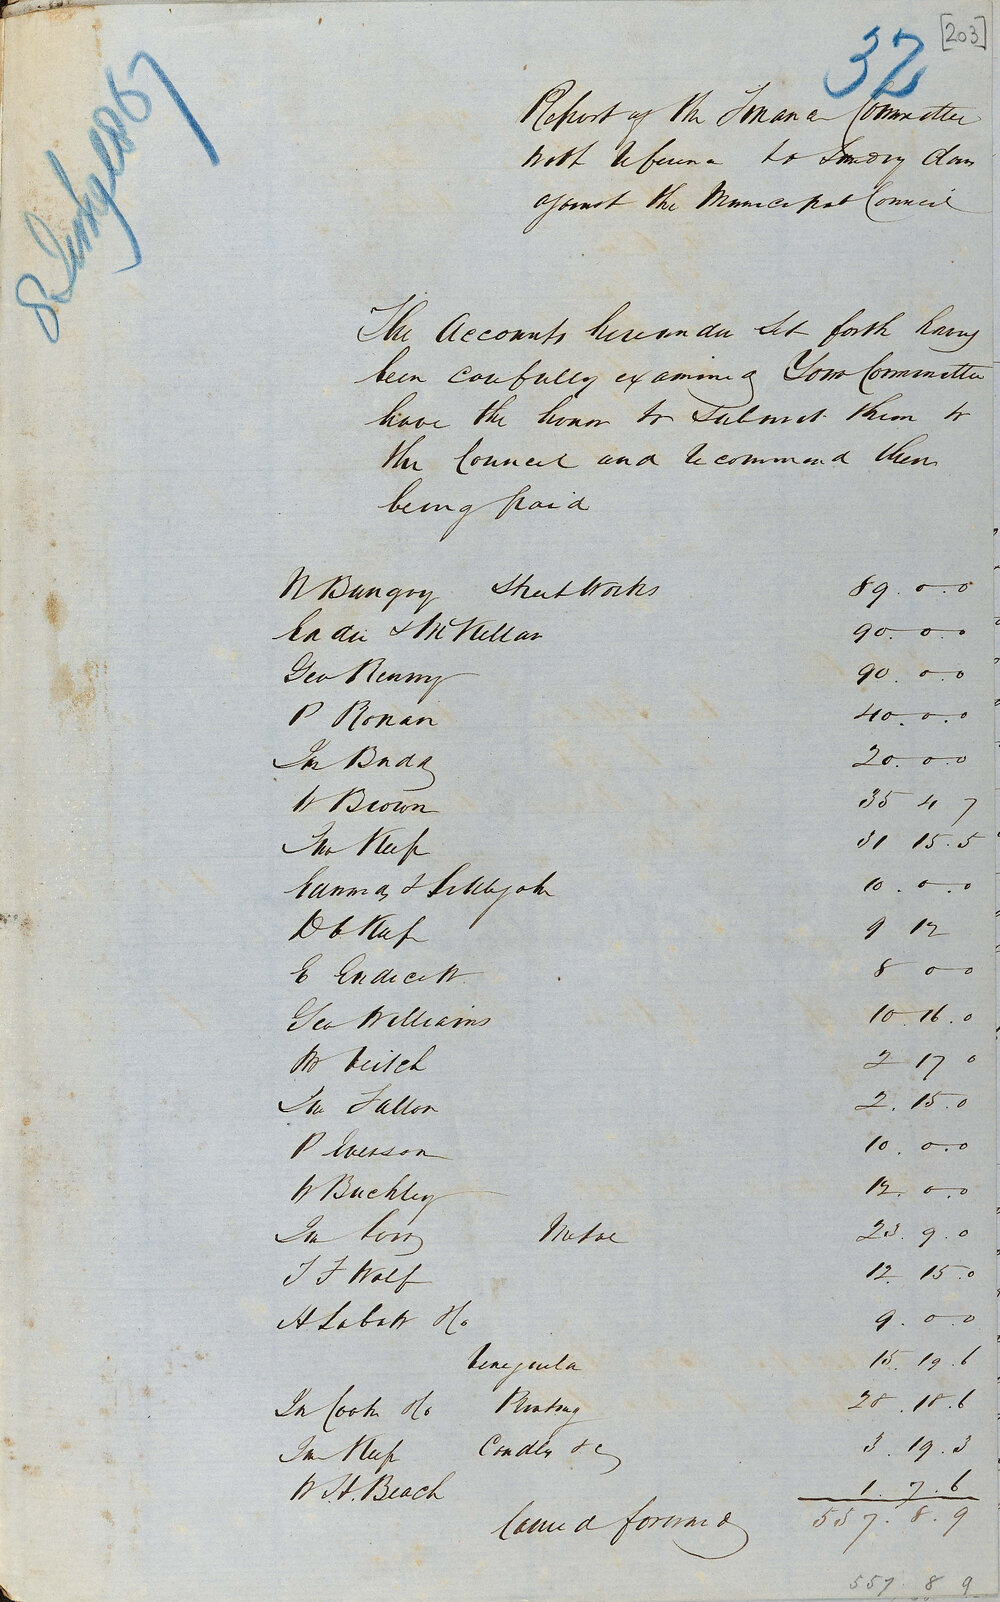 [203]
32
Report of the Finance Committee
with reference to Sundry Claims
against the Municipal Council
The Accounts hereunder set forth having
been carefully examined Your Committee
have the honor to submit them to
the Council and recommend them
being paid
Street Works 89. 0. 0
& McKellar 90. 0. 0
Geo Kenny 90. 0. 0
P Ronan 40. 0. 0
20. 0. 0
W Brown 35 4 7
Jno Keep 31 15. 5
& Littlejohn 10. 0. 0
D C Keep 9 12
E Endicott 8 0 0
Geo Williams 10. 16. 0
W Veitch 2 17 0
Jno Fallon 2. 15. 0
P Iverson 10. 0. 0
W Buckley 12. 0. 0
Metal 23. 9. 0
T F Wolf 12. 15. 0
H Labatt 9. 0. 0
15. 19. 6
Jn Cook Printing 28. 18. 6
Jno Keep Candles &c 3. 19. 3
W. H. Beach 1. 7. 6
Carried forward 557. 8. 9
557 8 9